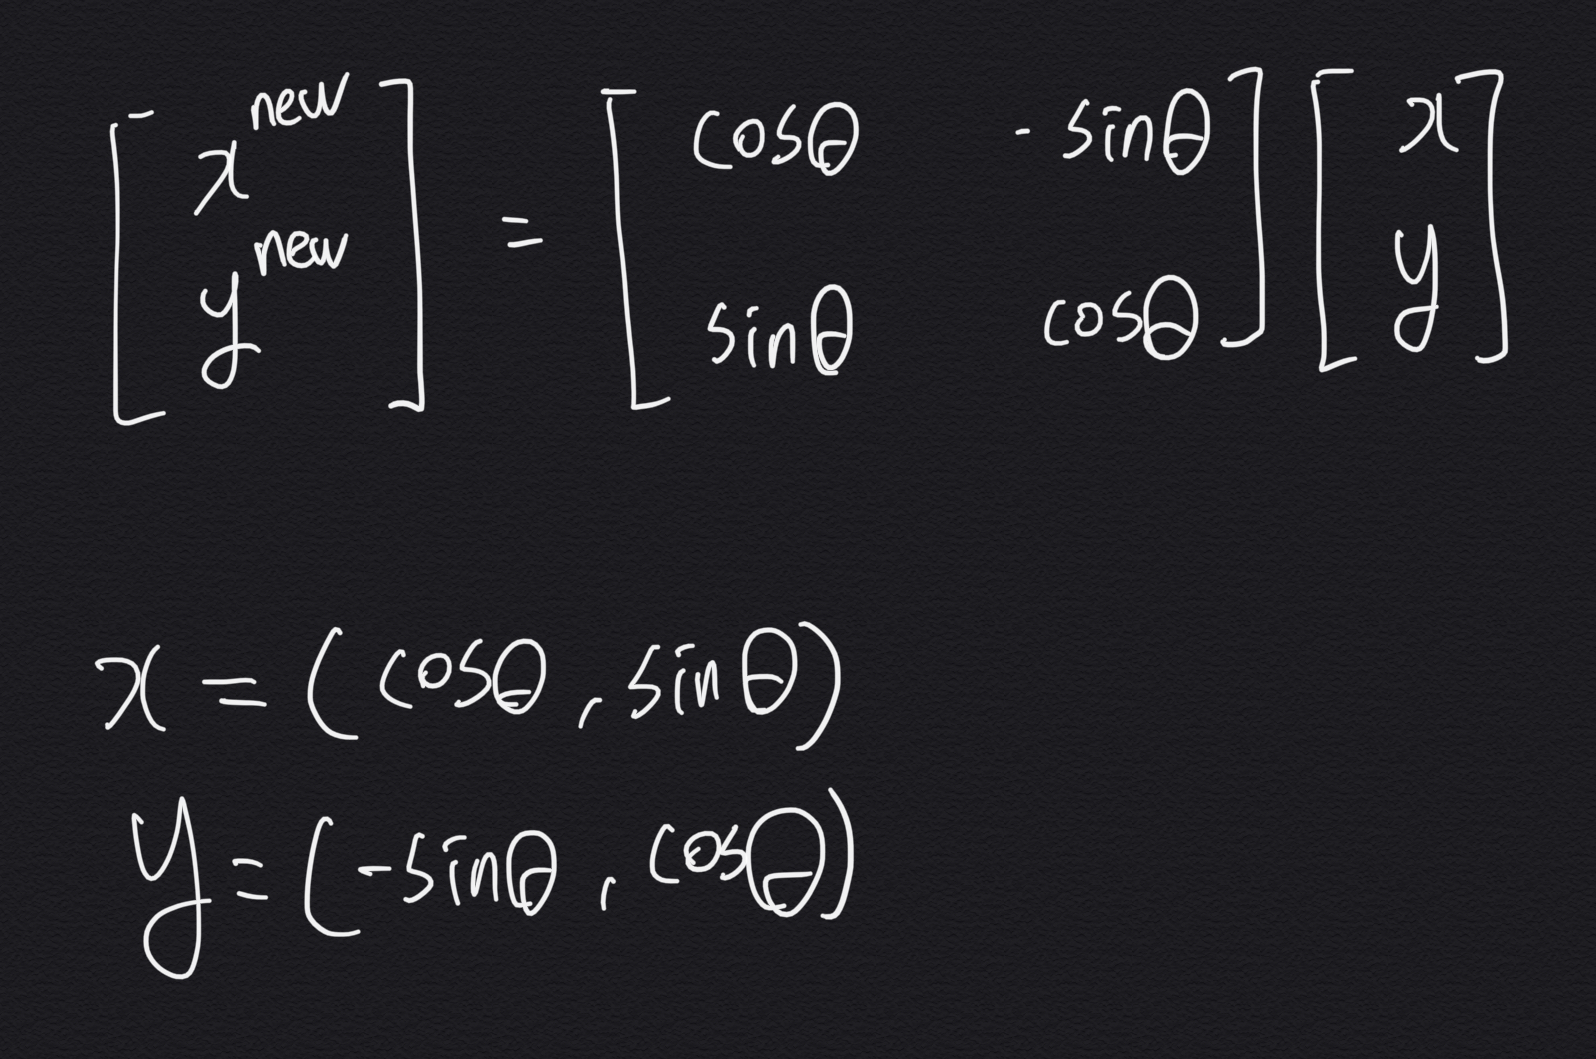 [x^new y^new] = [cosθ -sinθ sinθ cosθ] [x y]
x = (cosθ, sinθ)
y = (-sinθ, cosθ)